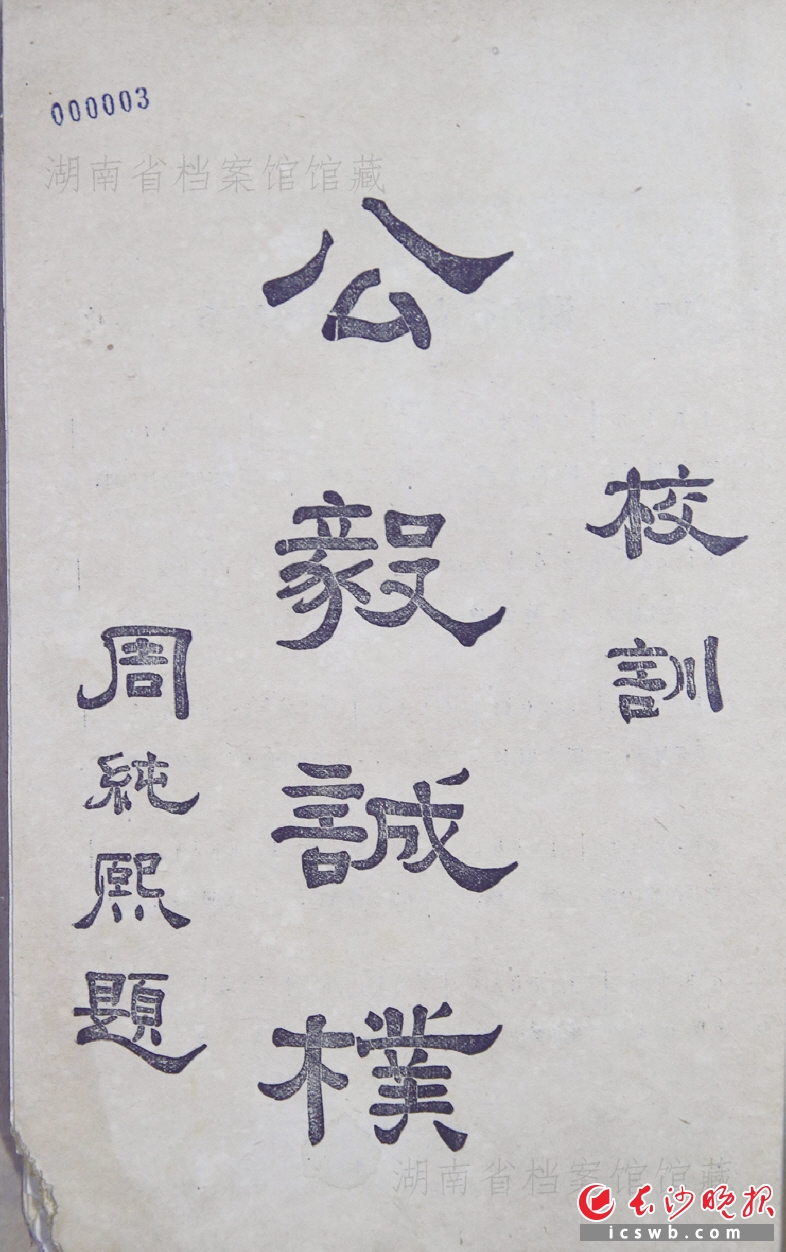 000003
湖南省档案馆馆藏
校訓
公毅誠樸
周純熙題
湖南省档案馆馆藏
长沙晚报
icswb.com